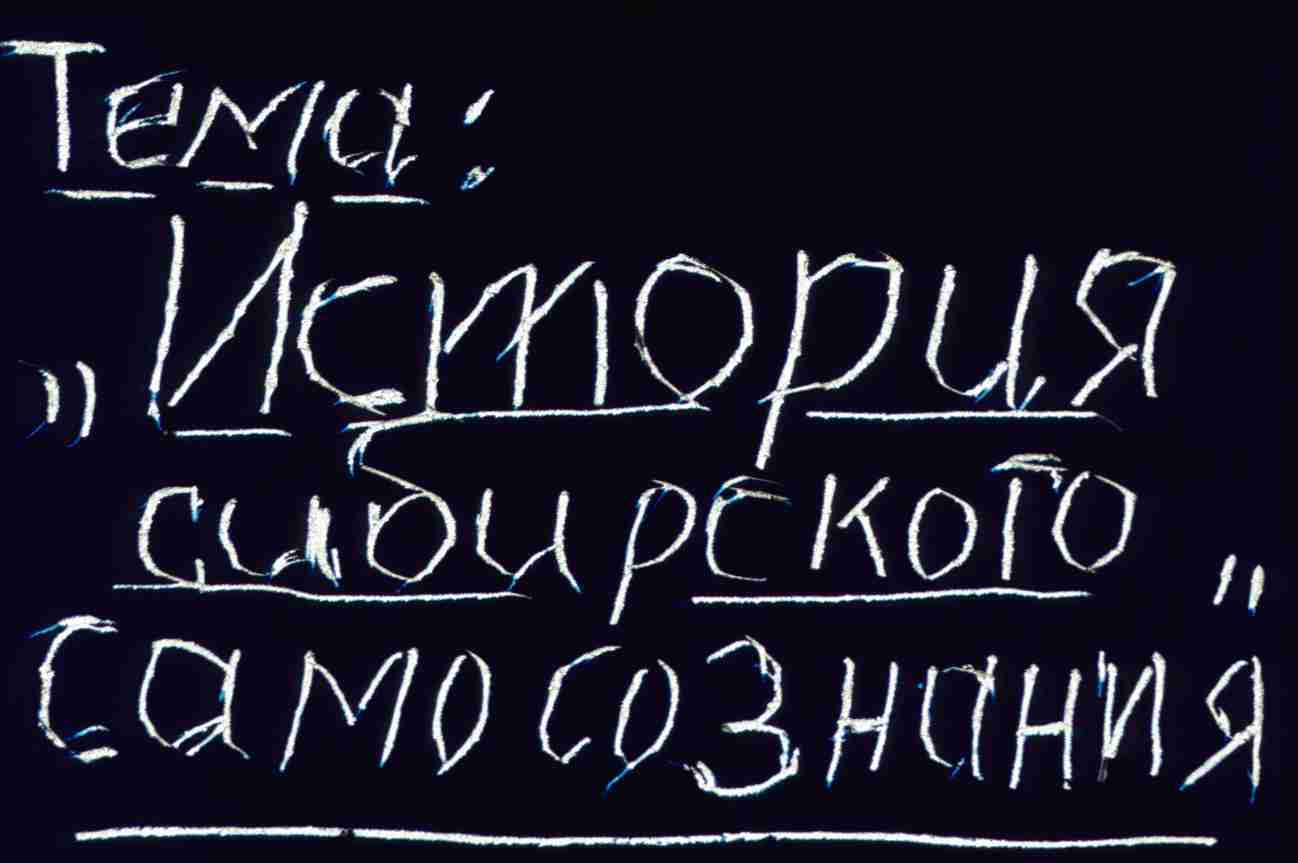 Тема:
„История
сибирского
самосознания"